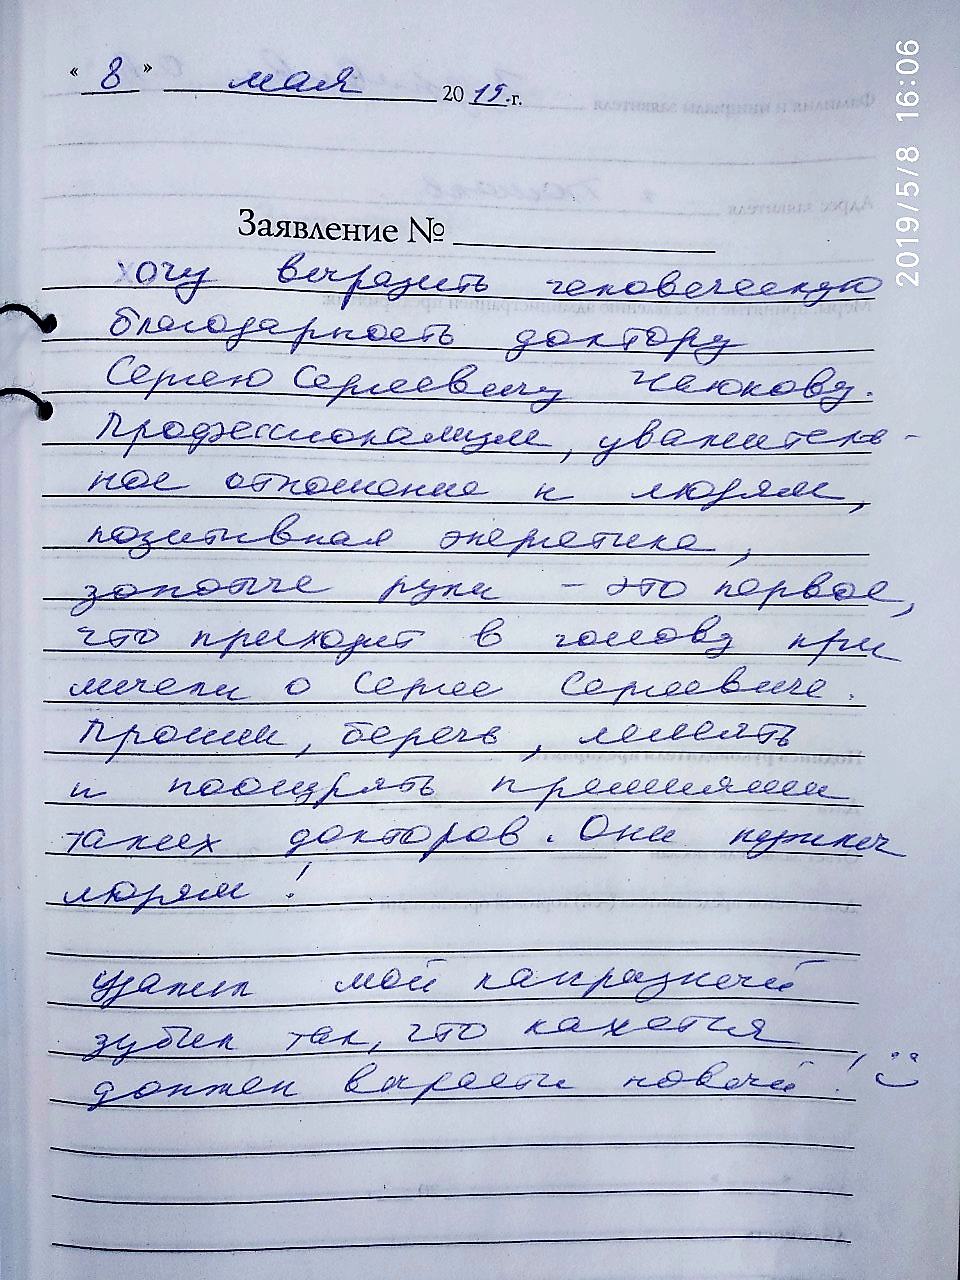 « 8 » мая 2019.г.
2019/5/8 16:06
Заявление №
Хочу выразить человеческую
благодарность доктору
Сергею Сергеевичу
Профессионализм, уважитель-
ное отношение к людям,
позитивная энергетика,
золотые руки – это первое,
что приходит в голову при
мысли о Сергее Сергеевиче.
Просим, беречь, лелеять
и поощрять
таких докторов. Они нужны
людям!
Удалил мой капризный
зубик так, что кажется
должен вырасти новый! :)
Фамилия и инициалы заявителя
Адрес заявителя